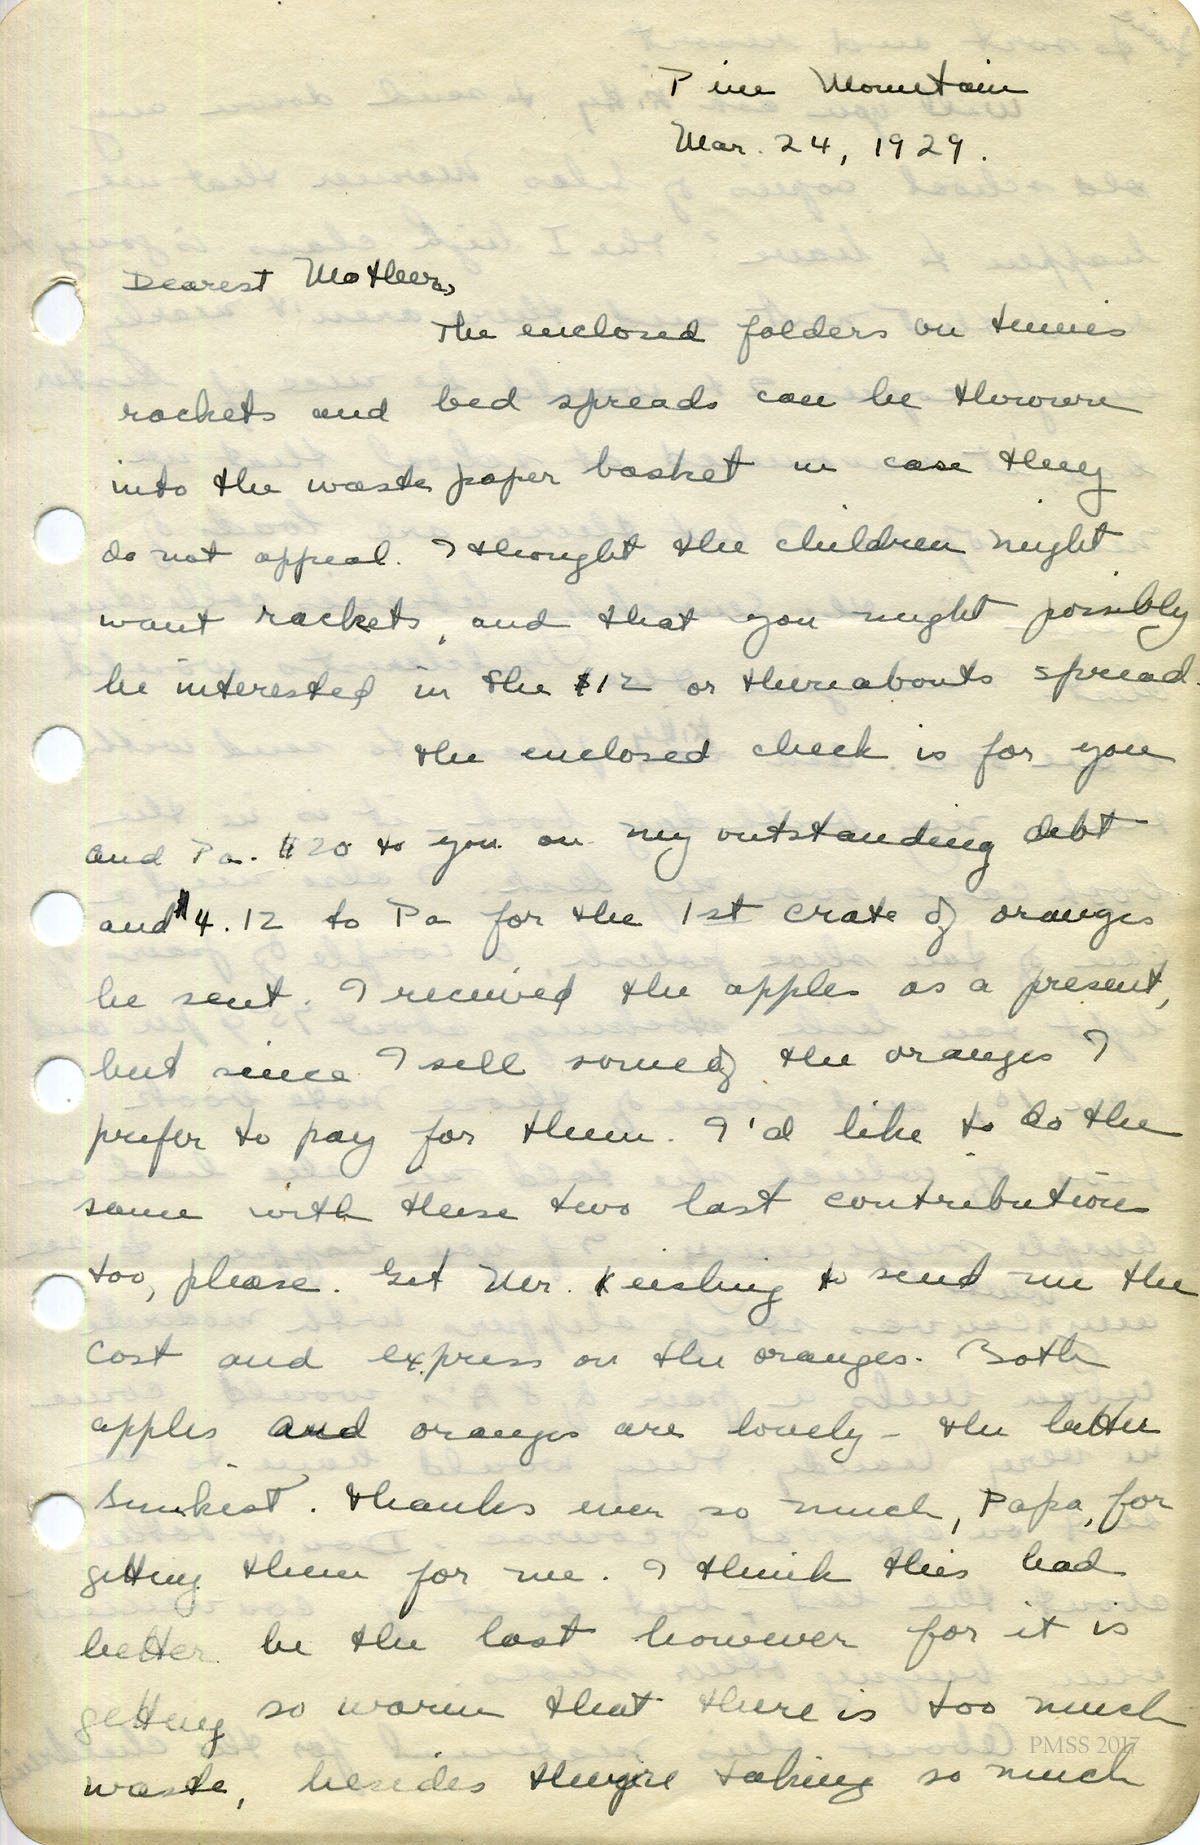 Pine Mountain
Mar. 24, 1929.
Dearest Mother,
The enclosed folders on tennis
rackets and bed spreads can be thrown
into the waste paper basket in case they
do not appeal. I thought the children might
want rackets, and that you might possibly
be interested in the $12 or thereabouts spread.
The enclosed check is for you
and Pa. $20 to you on my outstanding debt
and $4.12 to Pa for the 1st crate of oranges
he sent. I received the apples as a present,
but since I sell some of the oranges I
prefer to pay for them. I'd like to do the
same with these two last contributions
too, please. Get Mr. to send me the
cost and express on the oranges. Both
apples and oranges are lovely - the latter
Sunkist. Thanks ever so much, Papa, for
getting them for me. I think this had
better be the last however for it is
getting so warm that there is too much
waste, besides they're taking so much
PMSS 2017